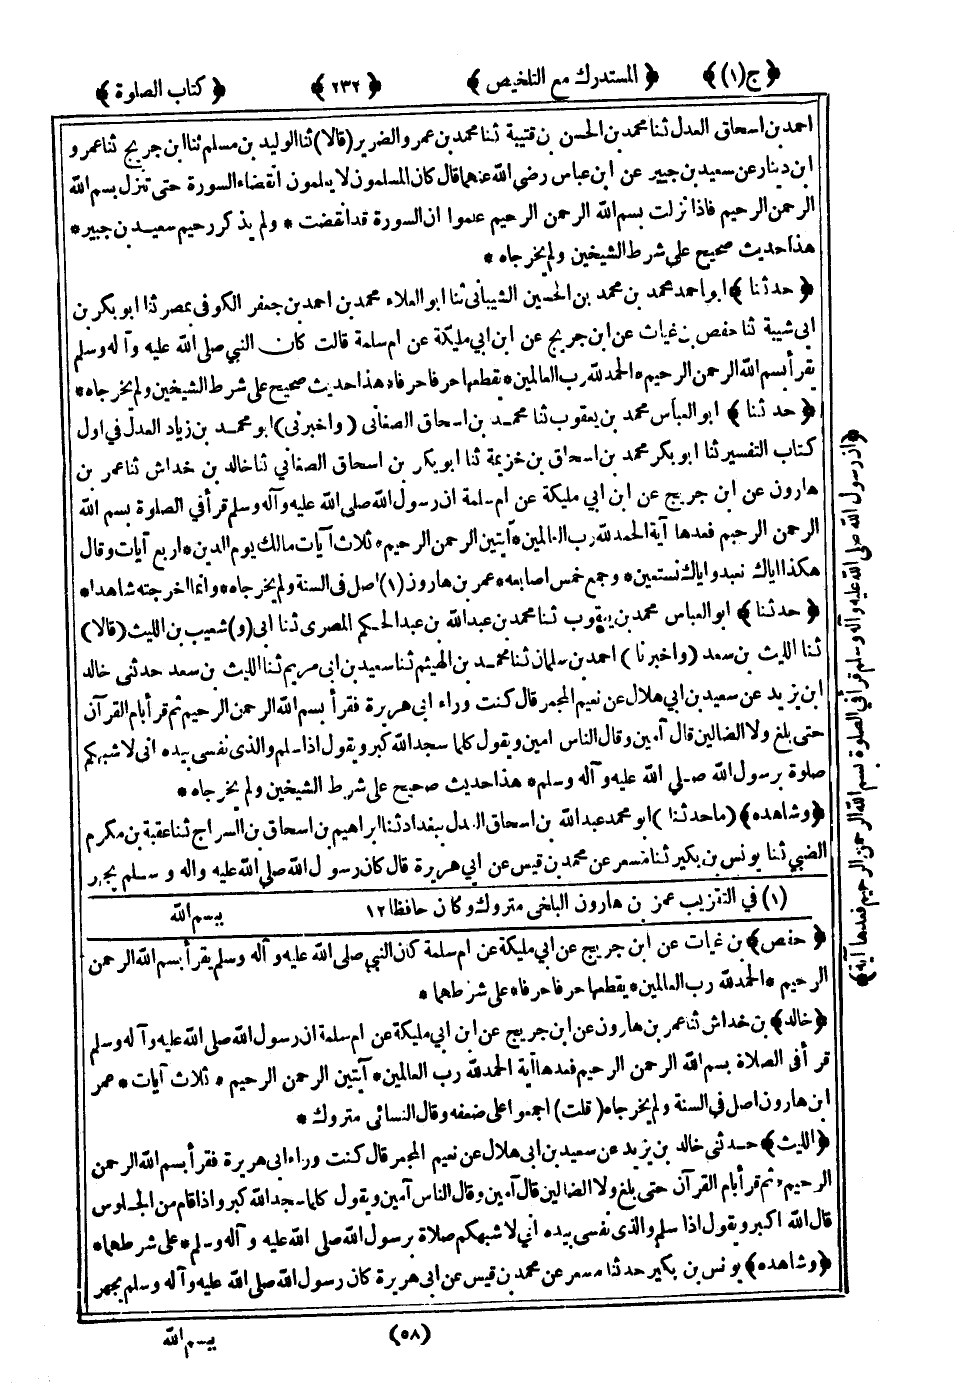 ﴿ج(١)﴾ ﴿المستدرك مع التلخيص﴾ ﴿٢٣٢﴾ ﴿كتاب الصلوة﴾
احمد بن اسحاق العدل ثنا محمد بن الحسن بن قتيبة ثنا محمد بن عمرو الضرير (قالا) ثنا الوليد بن مسلم ثنا ابن جريج ثنا عمرو
ابن دينار عن سعيد بن جبير عن ابن عباس رضى الله عنهما قال كان المسلمون لا يعلمون انقضاء السورة حتى تنزل بسم الله
الرحمن الرحيم فاذا نزلت بسم الله الرحمن الرحيم علموا ان السورة قد انقضت * ولم يذكر رحيم سعيد بن جبير *
هذا حديث صحيح على شرط الشيخين ولم يخرجاه *
﴿حدثنا﴾ ابو احمد محمد بن محمد بن الحسين الشيبانى ثنا ابو العلاء محمد بن احمد بن جعفر الكوفى بمصر ثنا ابو بكر بن
ابى شيبة ثنا حفص بن غياث عن ابن جريج عن ابن ابي مليكة عن ام سلمة قالت كان النبي صلى الله عليه وآله وسلم
يقرأ بسم الله الرحمن الرحيم * الحمد لله رب العالمين * يقطعها حرفا حرفا * هذا حديث صحيح على شرط الشيخين ولم يخرجاه *
﴿حدثنا﴾ ابو العباس محمد بن يعقوب ثنا محمد بن اسحاق الصغانى (واخبرنى) ابو محمد بن زياد العدل فى اول
كتاب التفسير ثنا ابو بكر محمد بن اسحاق بن خزيمة ثنا ابو بكر بن اسحاق الصغاني ثنا خالد بن خداش ثنا عمر بن
هارون عن ابن جريج عن ابن ابي مليكة عن ام سلمة ان رسول الله صلى الله عليه وآله وسلم قرأ في الصلوة بسم الله
الرحمن الرحيم فعدها آية الحمد لله رب العالمين * آيتين الرحمن الرحيم * ثلاث آيات مالك يوم الدين * اربع آيات وقال
هكذا اياك نعبد واياك نستعين * وجمع خمس اصابعه * عمر بن هارون (١) اصل فى السنة ولم يخرجاه * وانما اخرجته شاهدا *
﴿حدثنا﴾ ابو العباس محمد بن يعقوب ثنا محمد بن عبد الله بن عبد الحكم المصرى ثنا ابى (و) شعيب بن الليث (قالا)
ثنا الليث بن سعد (واخبرنا) احمد بن سلمان ثنا محمد بن الهيثم ثنا سعيد بن ابى مريم ثنا الليث بن سعد حدثنى خالد
ابن يزيد عن سعيد بن ابي هلال عن نعيم المجمر قال كنت وراء ابى هريرة فقرأ بسم الله الرحمن الرحيم ثم قرأ بام القرآن
حتى بلغ ولا الضالين قال آمين وقال الناس امين ويقول كلما سجد الله اكبر ويقول اذا سلم والذى نفسى بيده انى لاشبهكم
صلوة برسول الله صلي الله عليه وآله وسلم * هذا حديث صحيح على شرط الشيخين ولم يخرجاه *
﴿وشاهده﴾ (ما حدثنا) ابو محمد عبد الله بن اسحاق العدل ببغداد ثنا ابراهيم بن اسحاق بن السراج ثنا عقبة بن مكرم
الضبي ثنا يونس بن بكير ثنا مسعر عن محمد بن قيس عن ابي هريرة قال كان رسول الله صلي الله عليه واله وسلم يجهر
(١) في التقريب عمر بن هارون البلخى متروك وكان حافظا ١٢ ببسم الله
﴿حفص﴾ بن غياث عن ابن جريج عن ابي مليكة عن ام سلمة كان النبي صلى الله عليه وآله وسلم يقرأ بسم الله الرحمن
الرحيم * الحمد لله رب العالمين * يقطعها حرفا حرفا * على شرطهما *
﴿خالد﴾ بن خداش ثنا عمر بن هارون عن ابن جريج عن ابن ابي مليكة عن ام سلمة ان رسول الله صلى الله عليه وآله وسلم
قرأ فى الصلاة بسم الله الرحمن الرحيم فعدها آية الحمد لله رب العالمين * آيتين الرحمن الرحيم * ثلاث آيات * عمر
ابن هارون اصل في السنة ولم يخرجاه (قلت) اجمعوا على ضعفه وقال النسائى متروك *
﴿الليث﴾ حدثنى خالد بن يزيد عن سعيد بن ابى هلال عن نعيم المجمر قال كنت وراء ابى هريرة فقرأ بسم الله الرحمن
الرحيم * ثم قرأ بام القرآن حتى بلغ ولا الضالين قال آمين وقال الناس آمين ويقول كلما سجد الله اكبر واذا قام من الجلوس
قال الله اكبر ويقول اذا سلم والذى نفسى بيده اني لاشبهكم صلاة برسول الله صلى الله عليه وآله وسلم * على شرطهما *
﴿وشاهده﴾ يونس بن بكير حدثنا مسعر عن محمد بن قيس عن ابى هريرة كان رسول الله صلى الله عليه وآله وسلم يجهر
(٥٨) ببسم الله
﴿ان رسول الله صلى الله عليه وآله وسلم قرأ في الصلوة بسم الله الرحمن الرحيم فعدها آية﴾